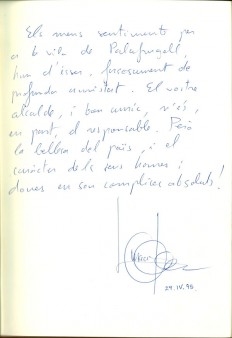 Els meus sentiments per
a la vila de Palafrugell,
han d'ésser, forçosament de
profunda amistat. El vostre
alcalde, i bon amic, n'és,
en part, el responsable. Però
la bellesa del país, i el
caràcter dels seus homes i
dones en són còmplices absoluts!
29.IV.95